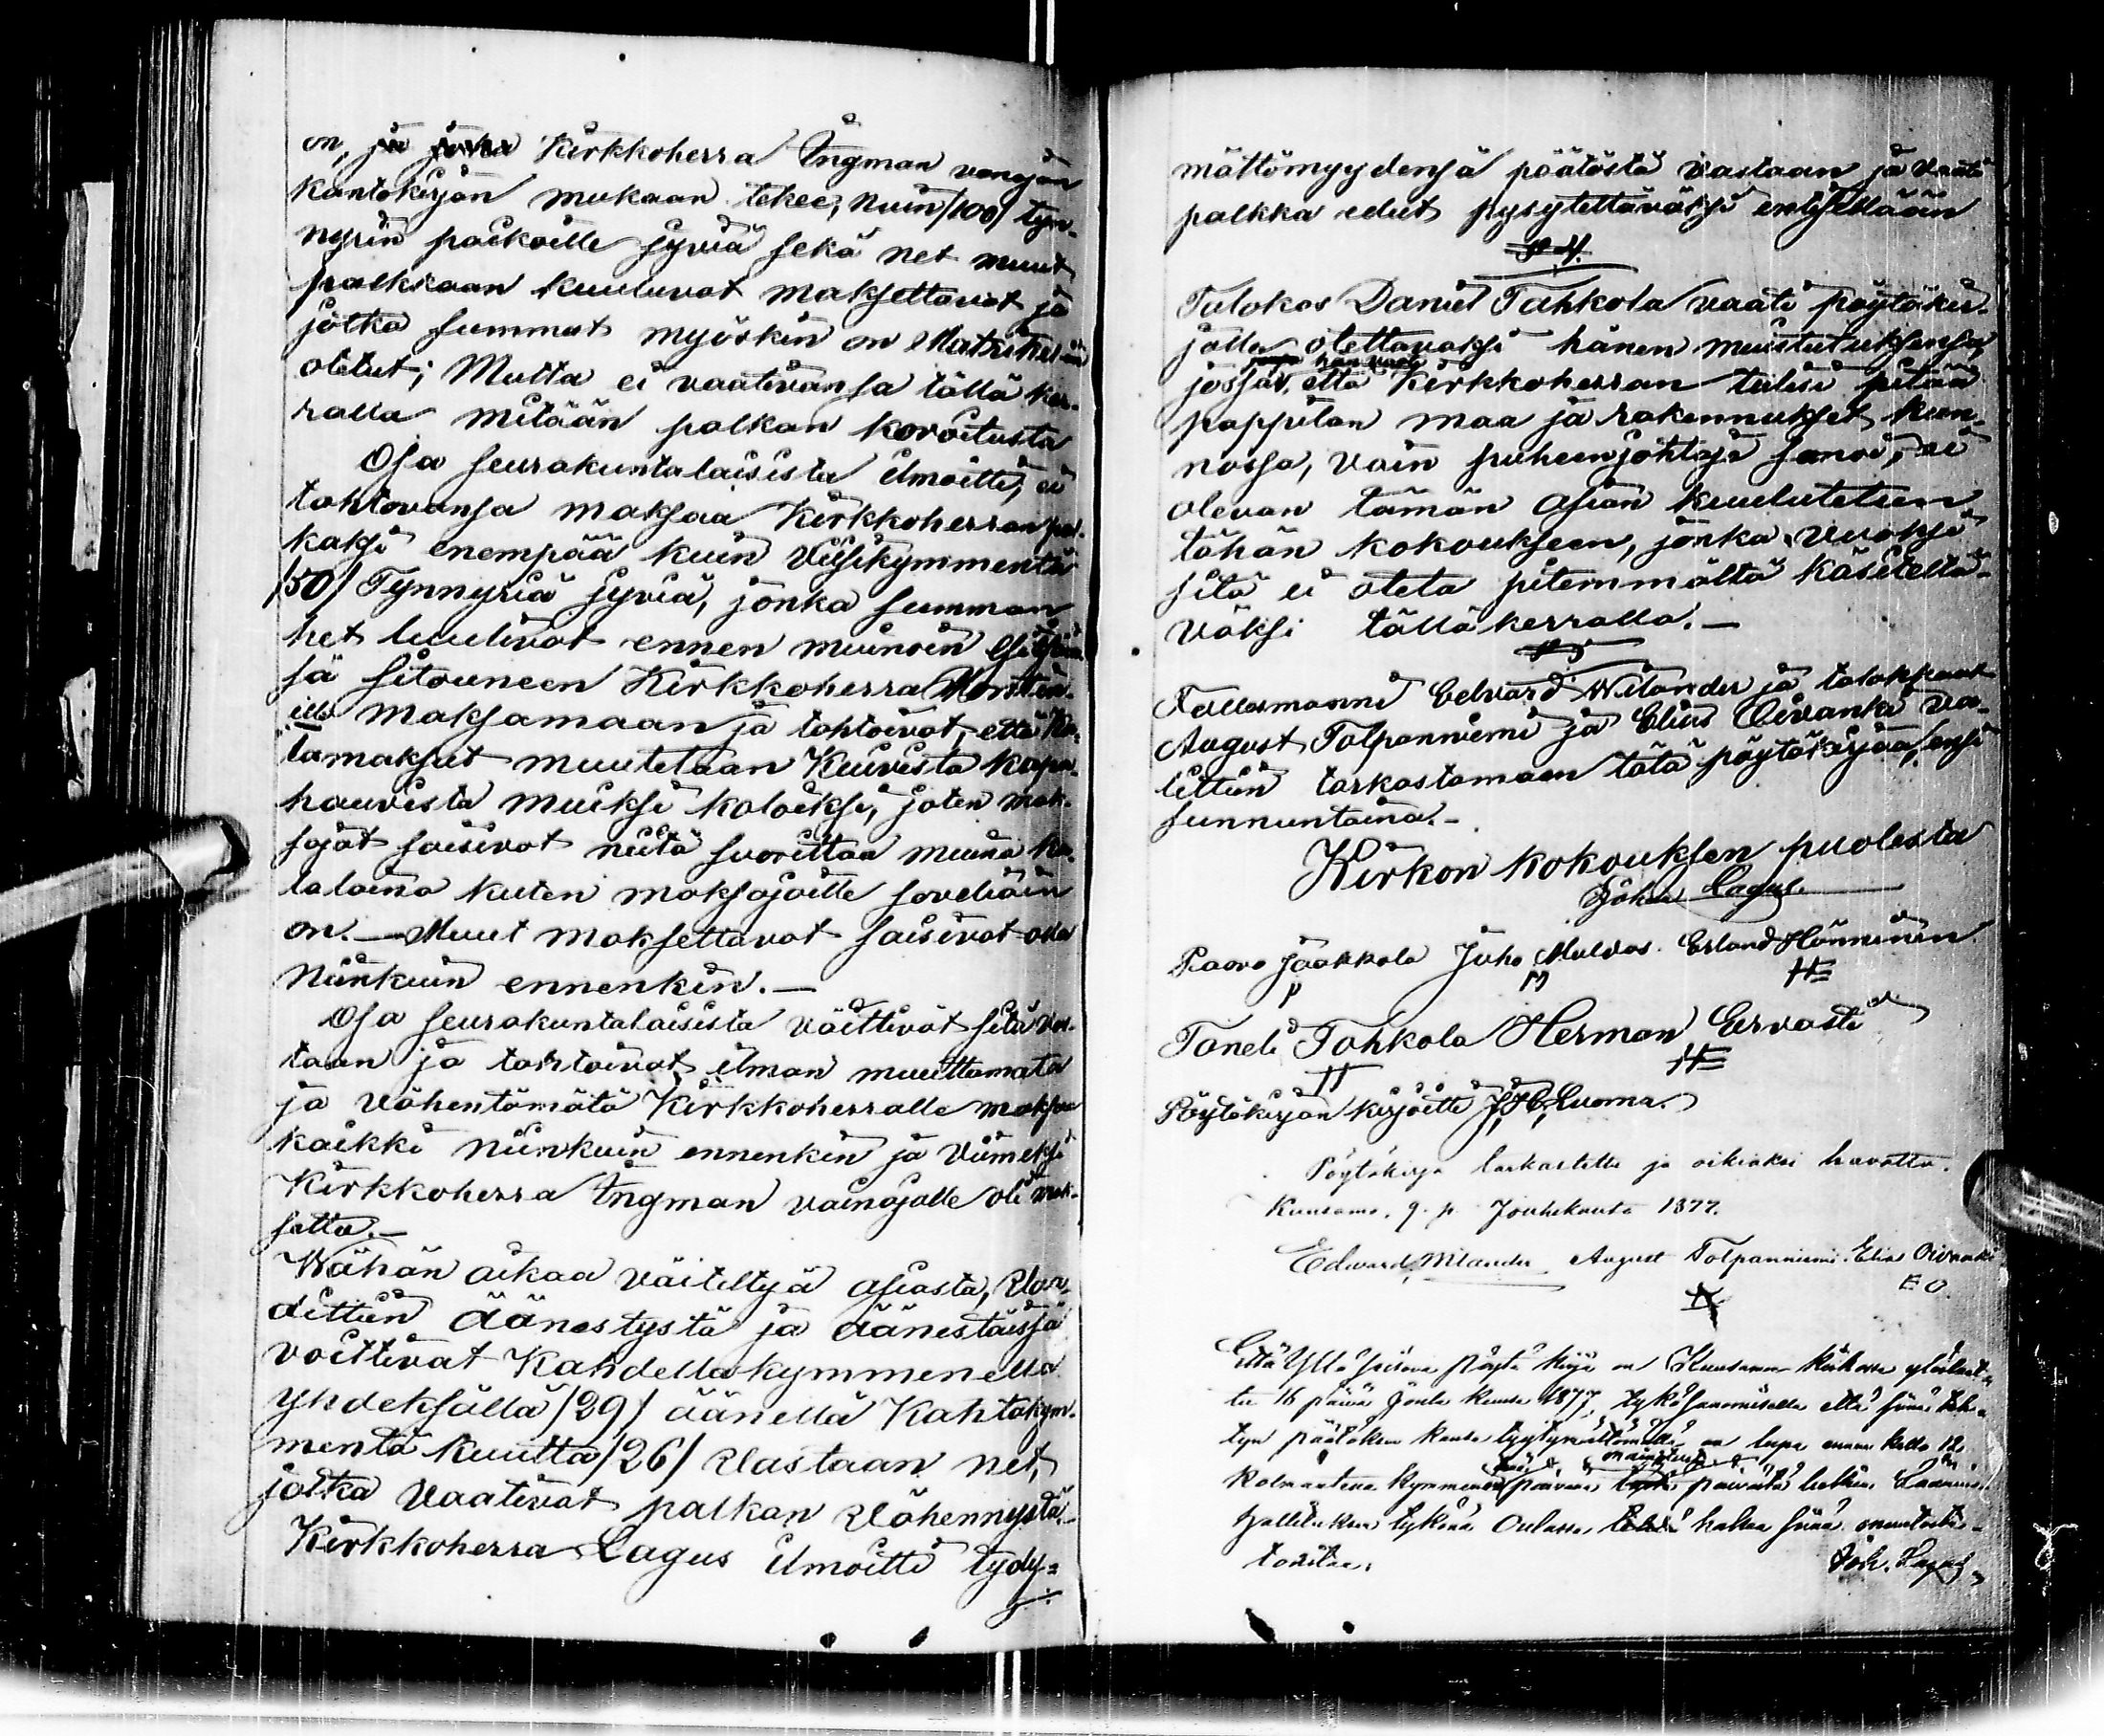 on, ja joka Kirkkoherra Ingman vanajan
kantokirjan mukaan tekee, Noin /100/ tyn-
nyrin paikoille jyviä sekä net muut
palkkaan kuuluvat maksettavat ja
jotka summat myöskin on Matrikeliin
otetut; Mutta ei vaativansa tällä ker-
ralla mitään palkan koroitusta
Osa seurakuntalaisista ilmoitti, ei
tahtovansa maksaa Kirkkoherran pal-
kaksi enempää kuin Viisikymmentä
/50/ Tynnyriä jyviä, jonka summan
het luulivat ennen muinoin
sä sitouneen Kirkkoherra
ille maksamaan ja tahtoivat, että Ka-
lamaksut muutetaan Kuivista kapa-
hauvista muiksi kaloiksi, joten mak-
sajat saisivat niitä suorittaa muina ka-
laloina kuten maksajoille soveliain
on. — Muut maksettavat saisivat olla
Niinkuin ennenkin. —
Osa seurakuntalaisista väittivät sitä vas-
taan ja tahtoivat ilman muuttamata
ja vähentämätä Kirkkoherralle maksaa
kaikki niinkuin ennenkin ja Viimeksi
Kirkkoherra Ingman vainajalle oli mak-
settu. —
Wähän aikaa väiteltyä asiasta, Vaa-
dittiin äänestystä ja äänestäissä
voittivat Kahdellakymmenellä
yhdeksällä /29/ äänellä Kahtakym-
mentä kuutta /26/ Vastaan net,
jotka Vaativat palkan Vähennystä. —
Kirkkoherra Lagus ilmoitti tydy-
mättömyydensä päätöstä vastaan ja vaati
palkka edut pysytettäväksi entisellään
§ 4.
Talokas Daniel Tahkola vaati pöytäkir-
jalla otettavaksi hänen muistutuksensa,
hän vaati
jossa, että Kirkkoherran tulisi pitää
pappilan maa ja rakennukset kun-
nossa, Vain puheenjohtaja sanoi, ei
olevan tämän asian kuulutetun
tähän kokoukseen, jonka vuoksi
sitä ei oteta pitemmältä käsiteltä-
väksi tällä kerralla. —
§ 5
Edvard Wilander ja talokkaat
August Tolpanniemi ja Elias Oivanki va-
littiin tarkastamaan tätä pöytäkirjaa, ensi
sunnuntaina. —
Kirkon kokouksen puolesta
Johan Lagus
Paavo Jaakkola Juho Mulvas. Erland Hänninen.
P M HE
Taneli Tahkola Herman Ervasti
TT HE
Pöytäkirjan kirjoitti J. H. Luoma.
Pöytäkirja tarkastettu ja oikiaksi havattu.
Kuusamo. 9. p. Joulukuuta 1877.
Edward Wilander August Tolpanniemi. Elias Oivanki
E O.
Että Yllä seisova pöytä kirja on Kuusamon kirkossa ylösluet-
tu 16 päivä Joulu kuussa 1877, tykö sanomisella että siinä teh-
tyn päätöksen kanssa tyytymättömällä on lupa ennen kello 12
mainitusta
kolmantena kymmenenä päivänä päivästä lukien Läänin
hallituksen tykönä Oulussa, hakea siinä muutosta
Joh. Lagus